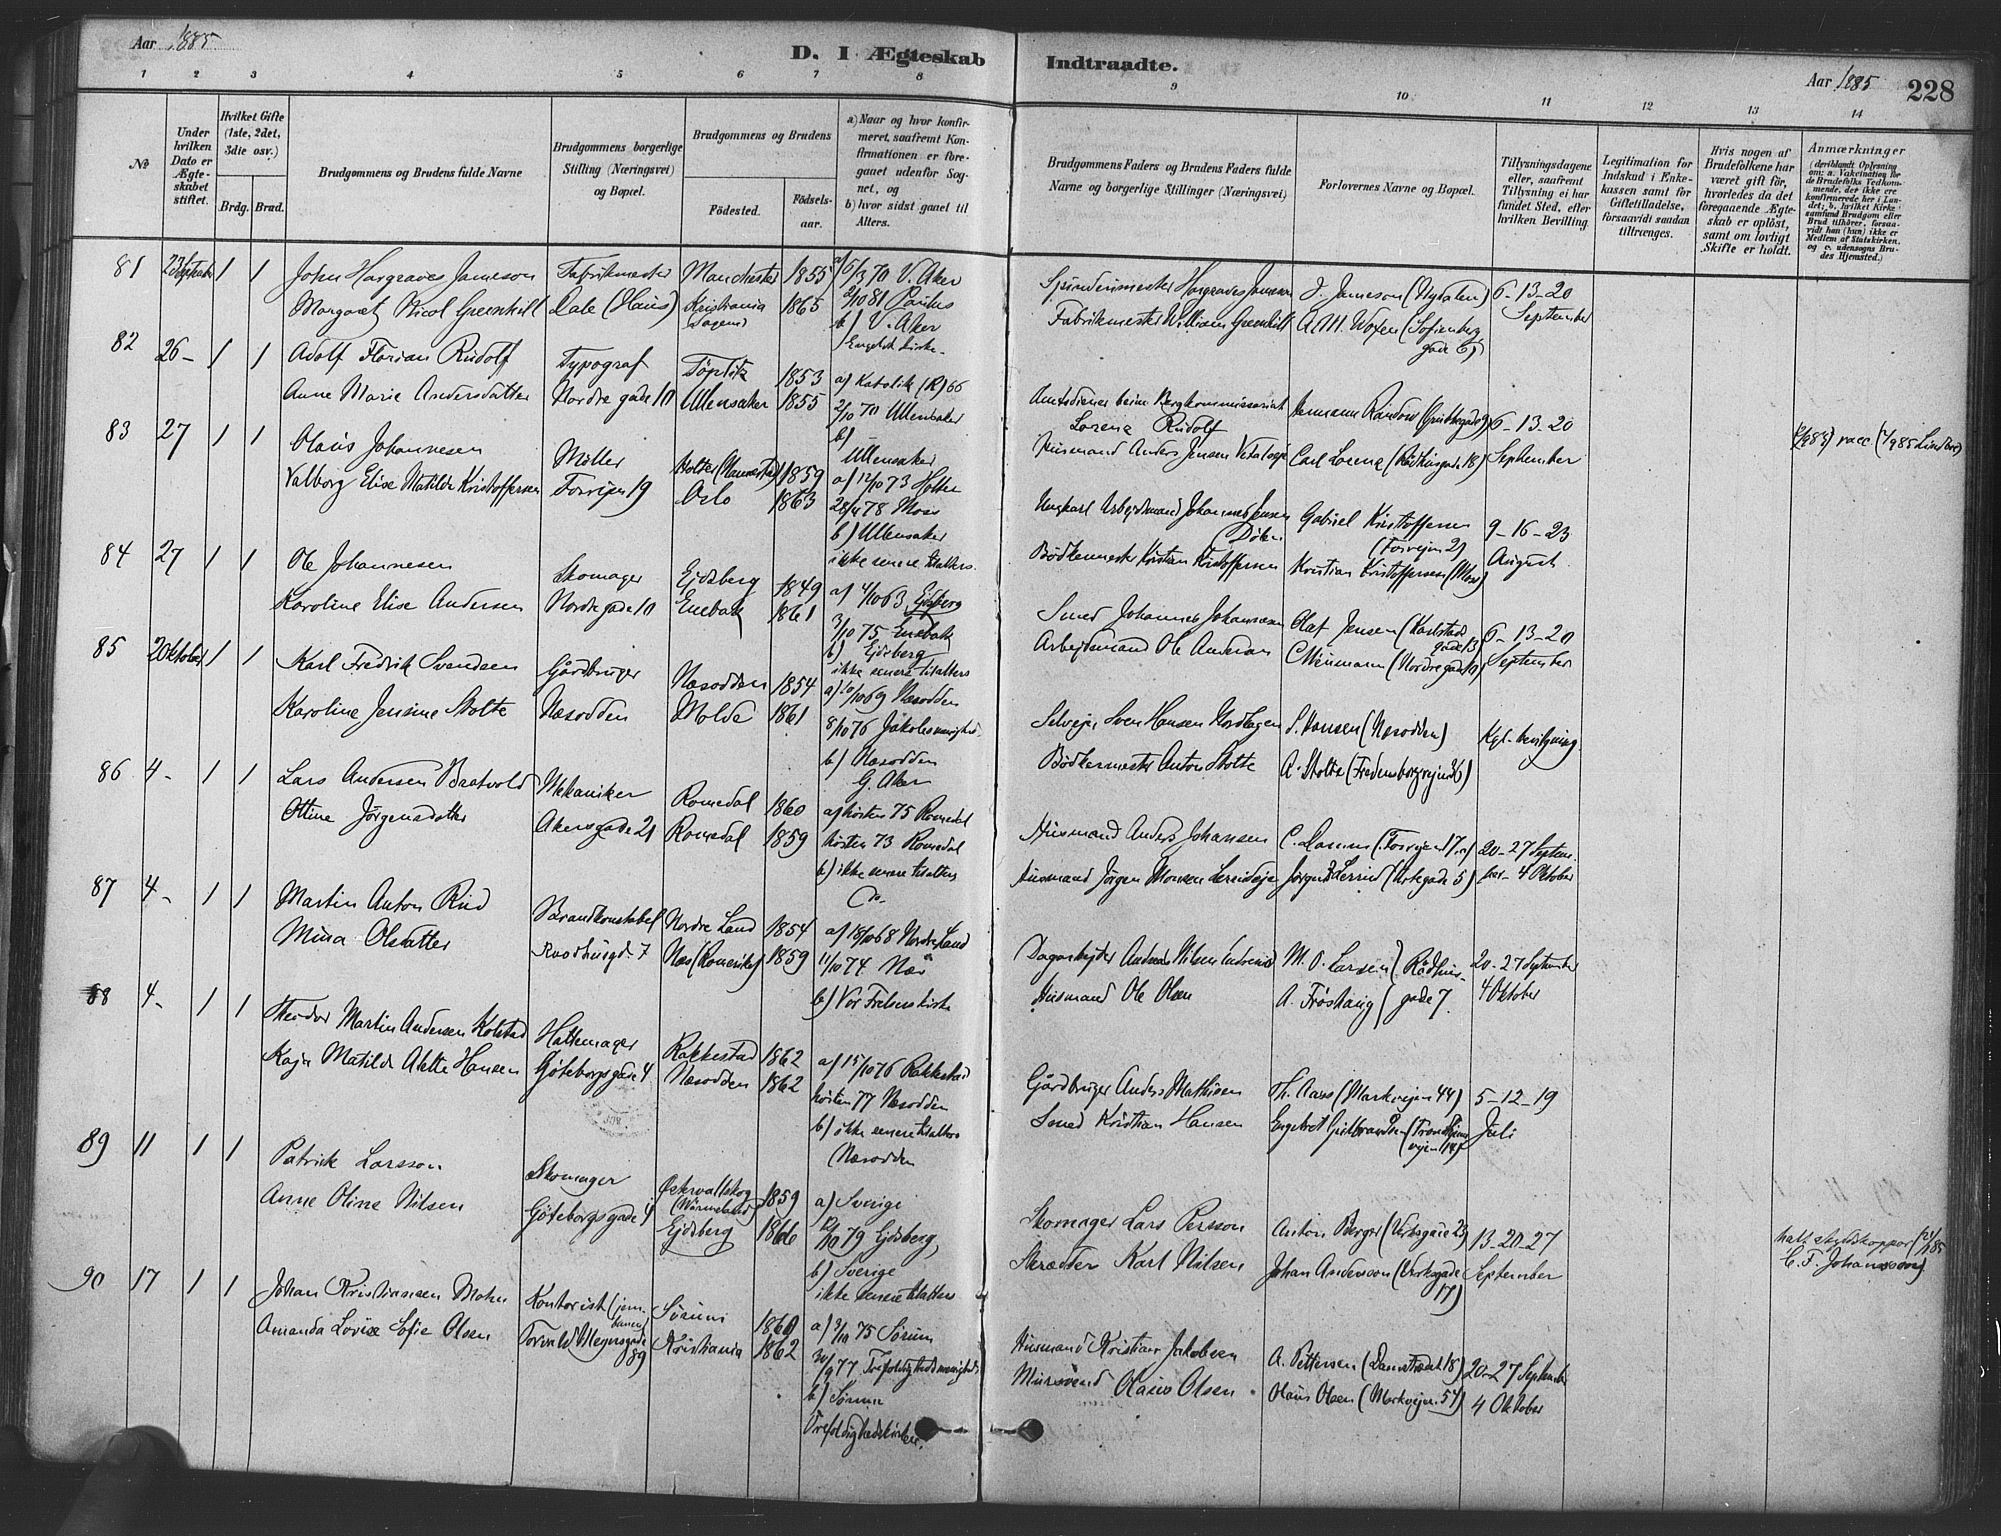 Aar 1885
D. I Ægteskab Indtraadte.
Aar 1885 228
1 2 3 4 5 6 7 8 9 10 11 12 13 14
No
Under hvilken Dato er Ægteskabet stiftet.
Hvilket Gifte (1ste, 2det, 3die osv.)
Brdg. Brud.
Brudgommens og Brudens fulde Navne
Brudgommens borgerlige Stilling (Næringsvei) og Bopæl.
Brudgommens og Brudens
Fødested.
Fødselsaar.
a) Naar og hvor konfirmeret, saafremt Konfirmationen er foregaaet udenfor Sognet, og
b) hvor sidst gaaet til Alters.
Brudgommens Faders og Brudens Faders fulde Navne og borgerlige Stillinger (Næringsvei)
Forlovernes Navne og Bopæl.
Tillysningsdagene eller, saafremt Tillysning ei har fundet Sted, efter hvilken Bevilling.
Legitimation for Indskud i Enkekassen samt for Giftetilladelse, forsaavidt saadan tiltrænges.
Hvis nogen af Brudefolkene har været gift før, hvorledes da det foregaaende Ægteskab er opløst, samt om lovligt Skifte er holdt.
Anmærkninger
(deriblandt Oplysning om: a. Vakcination for de Brudefolks Vedkommende, der ikke ere konfirmerede her i Landet; b. hvilket Kirkesamfund Brudgom eller Brud tilhører, forsaavidt han (hun) ikke er Medlem af Statskirken, og c. udensogns Brudes Hjemsted.)
81 23 September 1 1 John Hargraves Jameson Fabrikmester Manchester 1855 a) 5/3 70 V. Aker
Margaret Nicol Greenhill Dale (Haus) Kristiania 1865 2/10 81 Paulus
b) V. Aker
Engelsk kirke.
Spinderimester Hargraves Jameson J. Jameson (Nydalen) 6-13-20
Fabrikmester William Greenhill A. M. Woxen (Sofienberg gade 6) September
82 26 - 1 1 Adolf Florian Rudolf Typograf Töplitz 1853 a) Katolik (R) 66
Anne Marie Andersdatter Nordre gade 10 Ullensaker 1855 2/10 70 Ullensaker
b) -
Ullensaker
Amtsdiener beim Bergkommissariat Lorenz Rudolf Hermann Randow 6-13-20
Husmand Anders Jensen Carl Lorenz (Rådhusgade 18) September
83 27 1 1 Olaus Johannesen Møller Holter (Nannestad) 1859 a) 12/10 73 Holter
Valborg Elise Matilde Kristoffersen Fossvejen 19 Oslo 1863 28/4 78 Moss
b) Ullensaker
ikke senere til alters.
Ungkarl Arbejdsmand Johannes Jensen Gabriel Kristoffersen (Fossvejen 2) 9-16-23
Bödkermester Kristian Kristoffersen Kristian Kristoffersen (Moss) August
84 27 1 1 Ole Johannesen Skomager Ejdsberg 1849 a) 4/10 63 Ejdsberg
Karoline Elise Andersen Nordre gade 10 Enebak 1861 3/10 75 Enebak
b) Ejdsberg
ikke senere til alters
Smed Johannes Johannesen Olaf Jensen (Karlstadgade 13) 6-13-20
Arbejdsmand Ole Andersen C Neumann (Nordregade 10) September
85 2 Oktober 1 1 Karl Fredrik Svendsen Gårdbruger Næsodden 1854 a) 10/10 69 Næsodden
Karoline Jensine Stolte Næsodden Molde 1861 8/10 76 Jakobs menighed.
b) Næsodden
G. Aker
Selvejer Sven Hansen Nordhagen S. Hansen (Næsodden) Kgl. bevilgning
Bödkermester Anton Stolte A. Stolte (Fredensborgvejen 36)
86 4 - 1 1 Lars Andersen Bratvold Mekaniker Romedal 1860 a) høsten 75 Romedal
Ottine Jørgensdatter Akersgade 21 Romedal 1859 høsten 73 Romedal
b) ikke senere til alters
Do.
Husmand Anders Johansen C. Damm (Fossvejen 17) 20-27 September
Husmand Jørgen Monsen (Kirkegade 5) 4 Oktober
87 4 - 1 1 Martin Anton Rud Brandkonstabel Nordre Land 1854 a) 18/10 68 Nordre Land
Mina Olsdatter Raadhusgd 7 Næs (Romerike) 1859 11/10 74 Næs
b) Vor Frelsers kirke
Dagarbejder Andreas Nilsen M. O. Larsen } Rådhus- 20-27 September
Husmand Ole Olsen A. Frøshaug } gade 7. 4 Oktober
88 4 - 1 1 Theodor Martin Andersen Kolstad Hattemager Rakkestad 1862 a) 15/10 76 Rakkestad
Kaja Matilde Alette Hansen Göteborgsgade 4 Næsodden 1862 høsten 77 Næsodden
b) ikke senere til alters
Næsodden
Gårdbruger Anders Mathisen Th. Aas (Markvejen 44) 5-12-19
Smed Kristian Hansen Engebret Gulbrandsen (Trondhjemsvejen) Juli
89 11 1 1 Patrik Larsson Skomager Østervallskog (Wärmeland) 1859 a) Sverige
Anne Oline Nilsen Göteborgsgade 4 Ejdsberg 1866 12/10 79 Ejdsberg
b) Sverige
ikke senere til alters
Skomager Lars Persson Anton Berger 13-20-27
Skrædder Karl Nilsen Johan Andersson September
havt skyldskopper
C. F. Johansson)
90 17 1 1 Johan Kristiansen Moen Kontorist (jernbanen) Sørum 1860 a) 3/10 75 Sørum
Amanda Lovise Sofie Olsen Torvald Meyersgade 89 Kristiania 1862 30/9 77 Trefoldighedsmenighed
b) Sørum
Trefoldighedskirken.
Husmand Kristian Jakobsen A. Pettersen (Damstrædet 18) 20-27 September
Mursvend Olaus Olsen Olaus Olsen (Markvejen 57) 4 Oktober